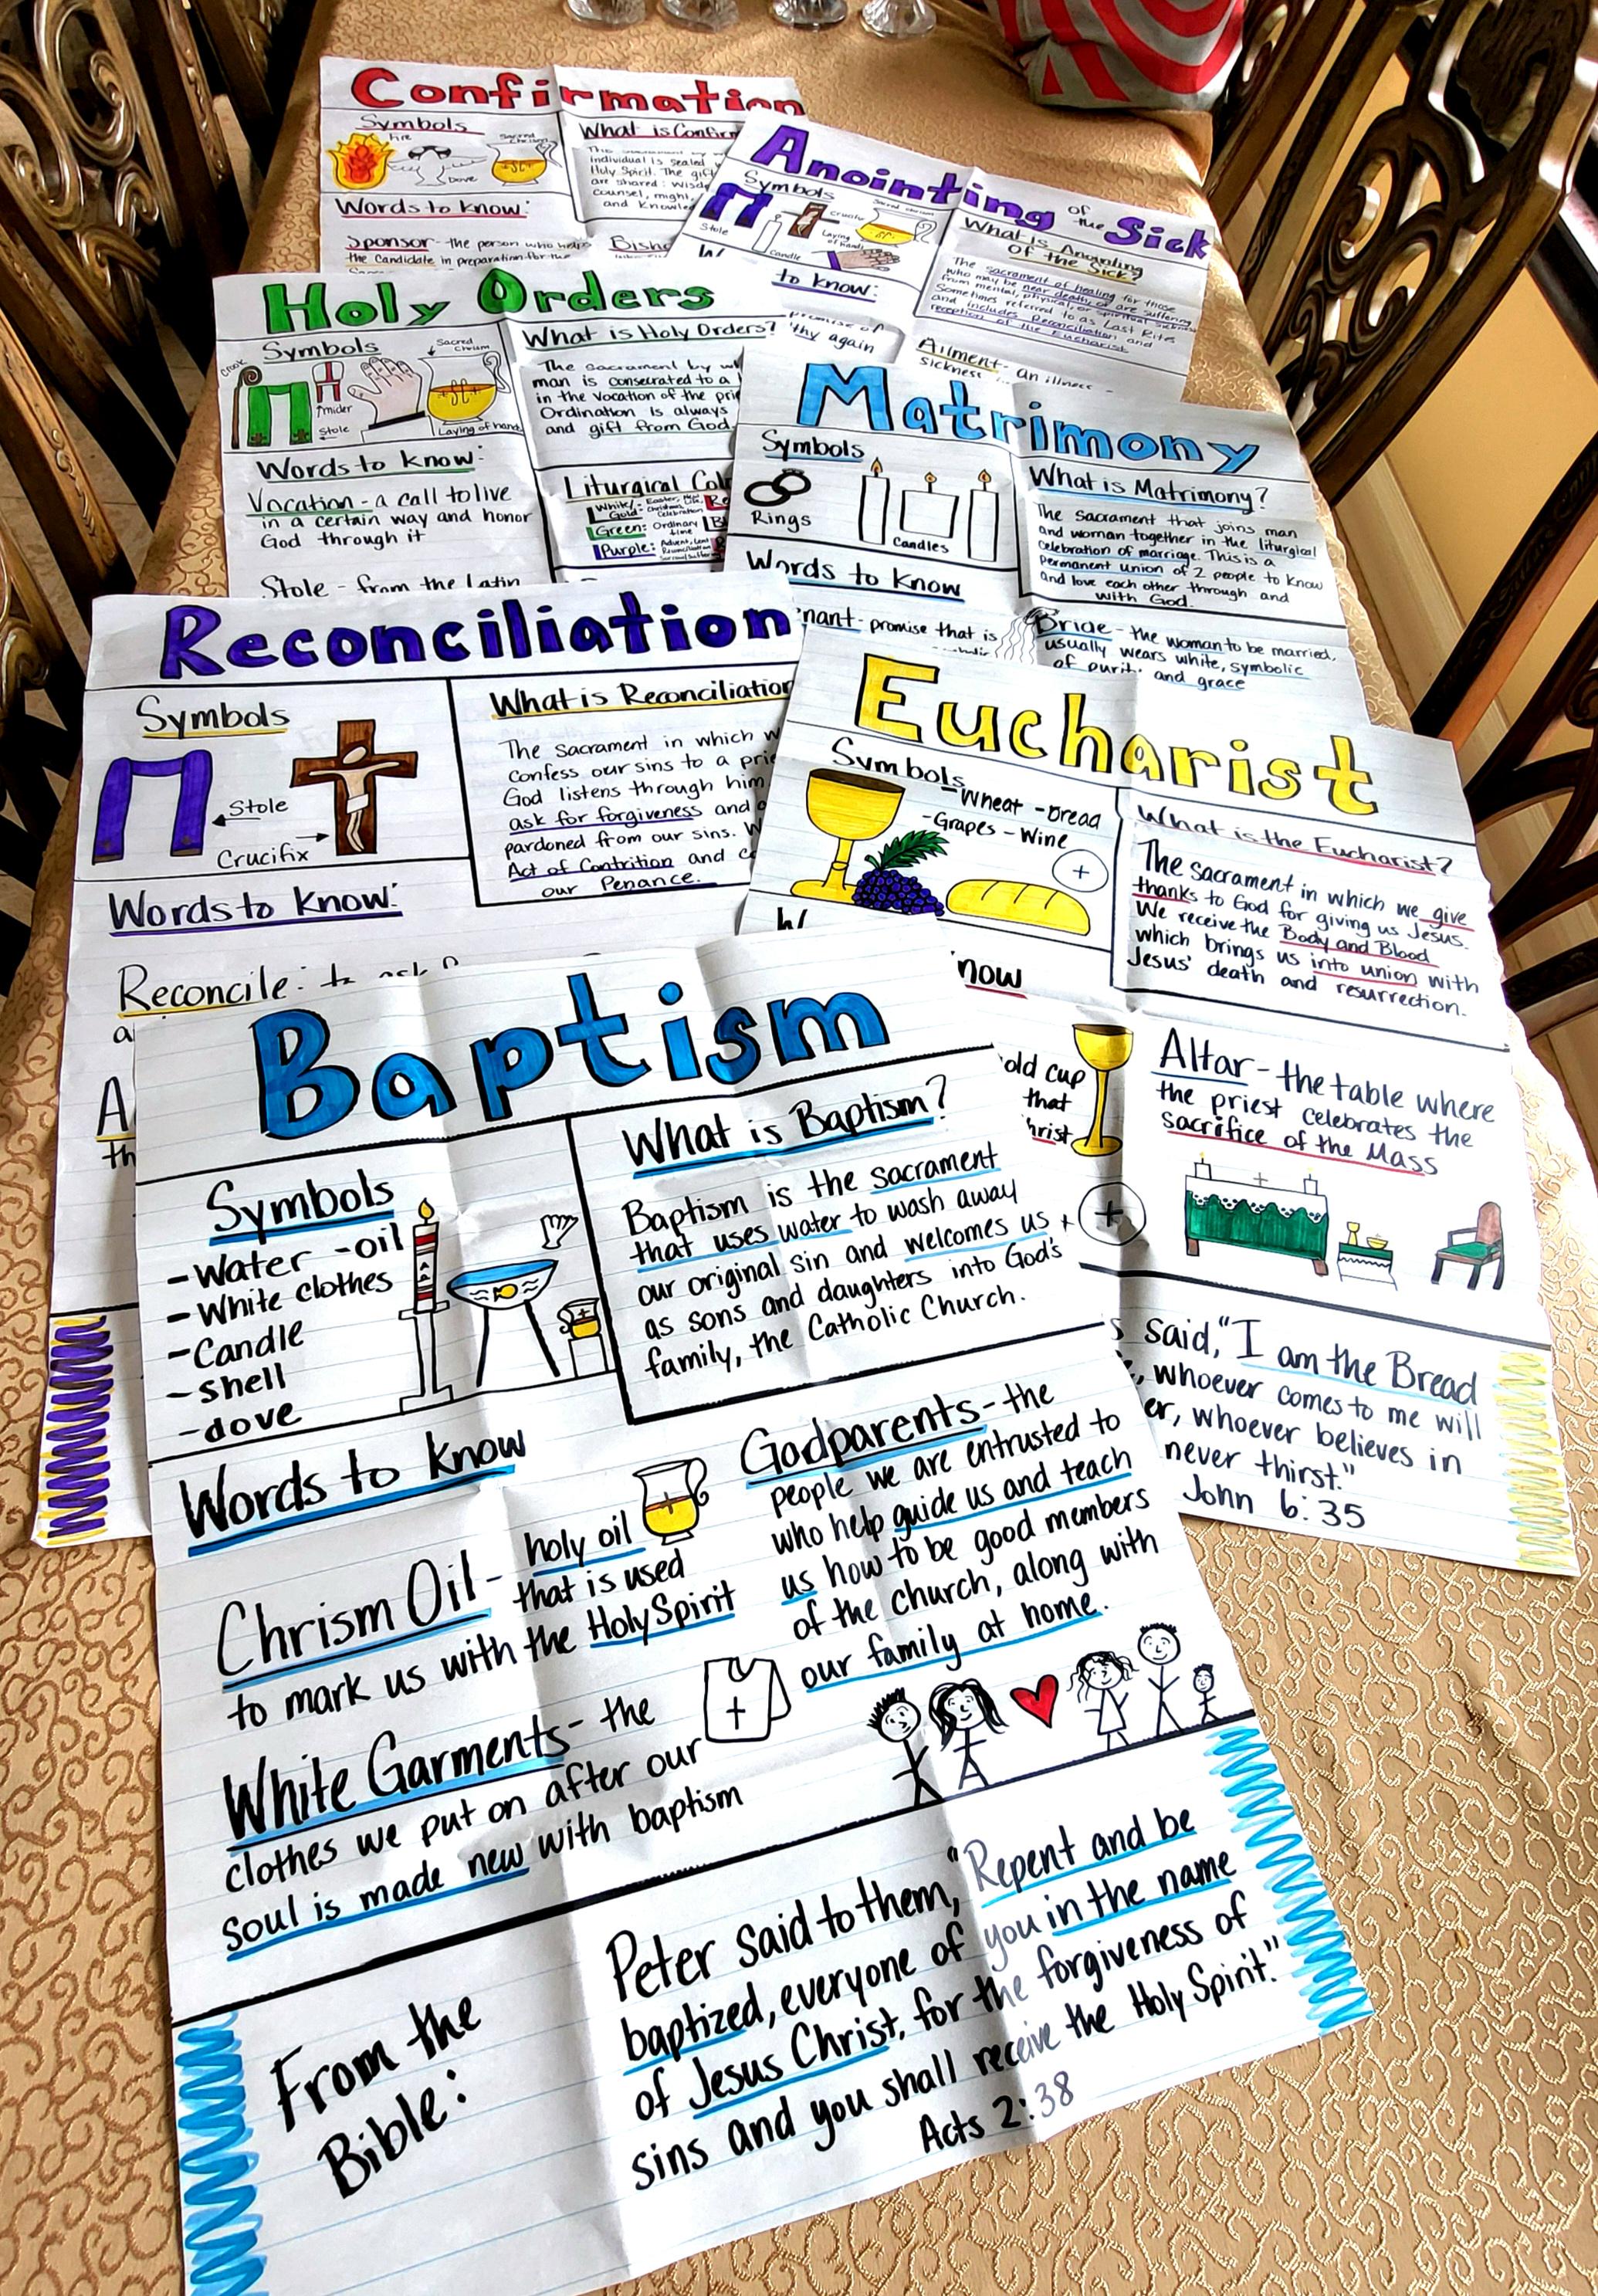 Confirmation
Symbols
Fire
Dove
Sacred
Chrism
What is Confirm
This sacrament
individual is sealed
Holy Spirit. The gif
are shared: Wisd
counsel, might,
and Knowle
Words to know:
Sponsor - the person who helps
the candidate in preparation for the
Bisho
Anointing of the Sick
Symbols
Stole
Candle
crucifix
Laying
of hands
Sacred chrism
What is Anointing
of the Sick?
The sacrament of healing for those
who may be near death or are suffering
from mental, physical or spiritual sickness
Sometimes referred to as Last Rites
and includes Reconciliation and
reception of the Eucharist
to know:
promise of
thy again
Ailment - an illness
sickness
Holy Orders
Symbols
Crook
mider
Stole
Sacred
Chrism
Laying of hands
What is Holy Orders?
The sacrament by w
man is consecrated to a
in the vocation of the pri
Ordination is always
and gift from God.
Words to know:
Vocation - a call to live
in a certain way and honor
God through it
Stole - from the Latin
Liturgical Col
White/
Gold:
Green: Ordinary
time
Purple: Advent, Lent
Reconciliation
Matrimony
Symbols
Rings
Candles
What is Matrimony?
The sacrament that joins man
and woman together in the liturgical
celebration of marriage. This is a
permanent union of 2 people to know
and love each other through and
with God.
Words to know
nant - promise that is
Bride - the woman to be married,
usually wears white, symbolic
of purity and grace
Reconciliation
Symbols
Stole
Crucifix
What is Reconciliation
The sacrament in which w
confess our sins to a prie
God listens through him
ask for forgiveness and
pardoned from our sins. W
Act of Contrition and c
our Penance.
Words to know:
Reconcile: to ask
a
A
th
Eucharist
Symbols
- Wheat - bread
- Grapes - Wine
What is the Eucharist?
The Sacrament in which we give
thanks to God for giving us Jesus.
We receive the Body and Blood
which brings us into union with
Jesus' death and resurrection.
now
old cup
that
hrist
Altar - the table where
the priest celebrates the
sacrifice of the Mass
s said, "I am the Bread
, whoever comes to me will
er, whoever believes in
never thirst."
John 6:35
Baptism
Symbols
- Water - oil
- White clothes
- Candle
- shell
- dove
What is Baptism?
Baptism is the sacrament
that uses water to wash away
our original sin and welcomes us
as sons and daughters into God's
family, the Catholic Church.
Words to know
Chrism Oil - holy oil
that is used
to mark us with the Holy Spirit
White Garments - the
clothes we put on after our
soul is made new with baptism
Godparents - the
people we are entrusted to
who help guide us and teach
us how to be good members
of the church, along with
our family at home.
From the
Bible:
Peter said to them, "Repent and be
baptized, everyone of you in the name
of Jesus Christ, for the forgiveness of
sins and you shall receive the Holy Spirit."
Acts 2:38